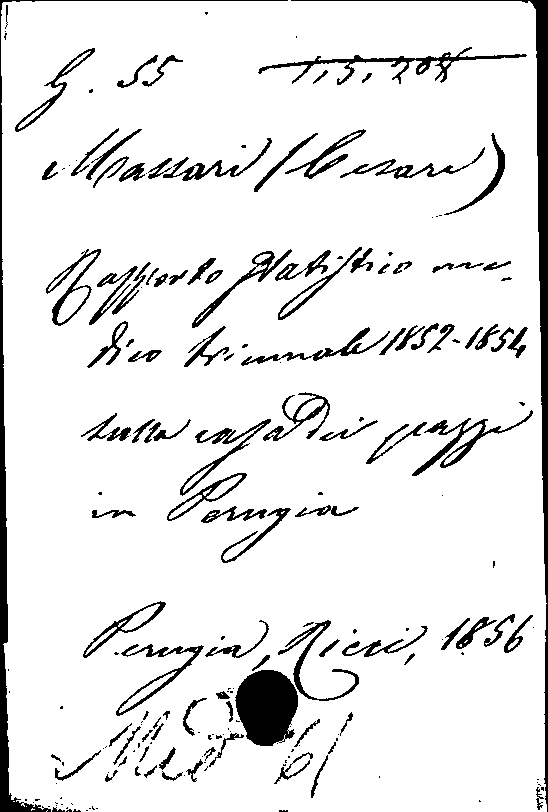 G. 55 1,5,208
Massari (Cesare)
Rapporto statistico me-
dico triennale 1852-1854
sulla casa dei pazzi
in Perugia
Perugia, Ricci, 1856
Med 61